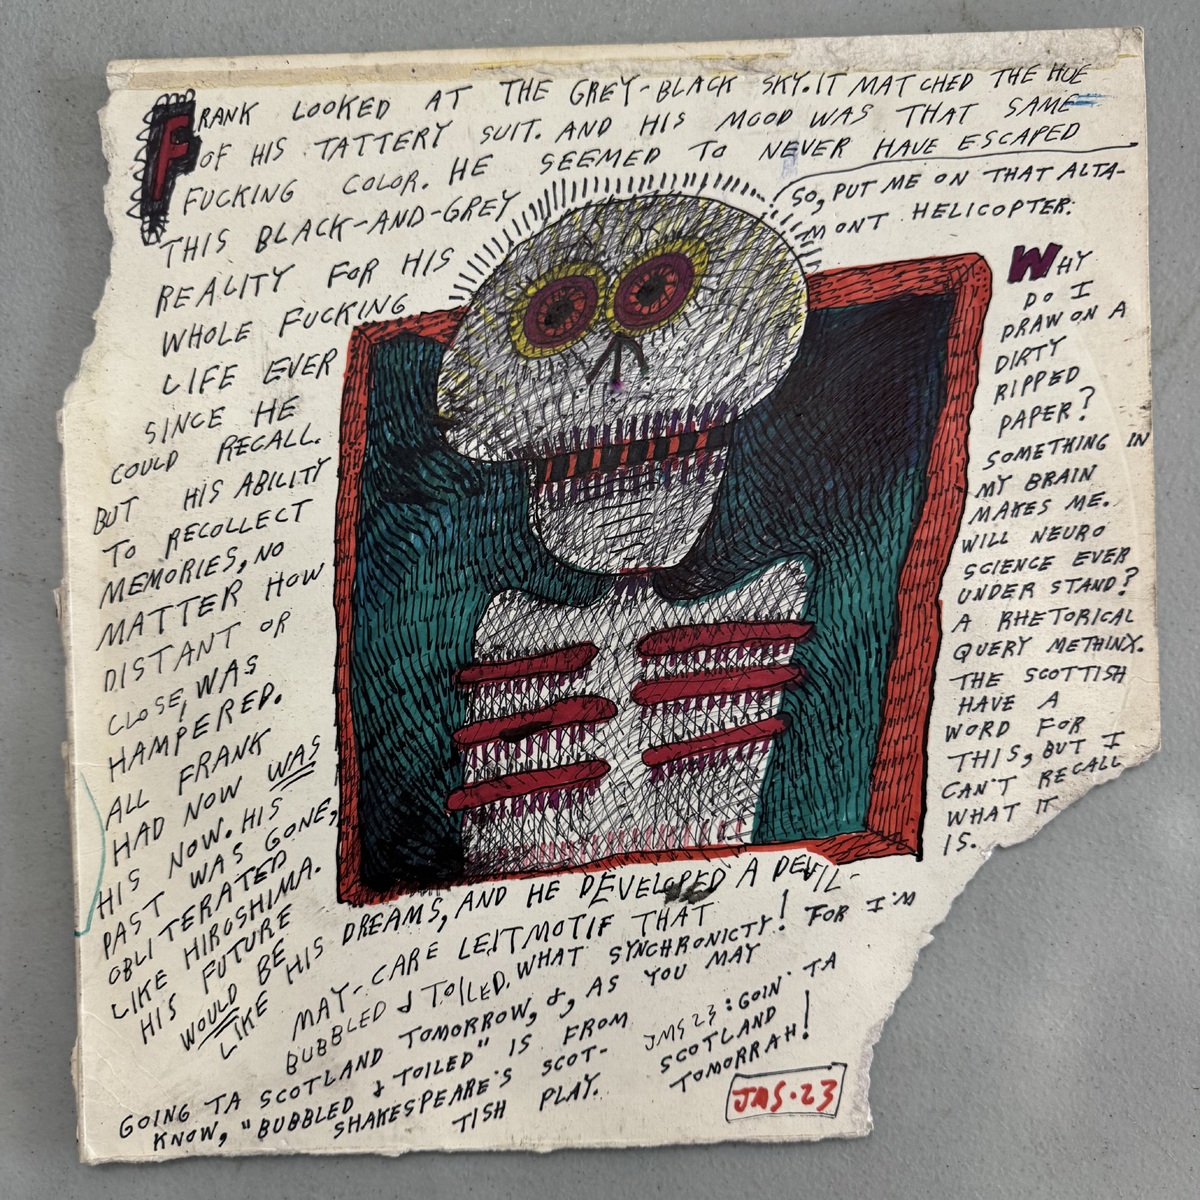 FRANK LOOKED AT THE GREY-BLACK SKY. IT MATCHED THE HUE
OF HIS TATTERY SUIT. AND HIS MOOD WAS THAT SAME
FUCKING COLOR. HE SEEMED TO NEVER HAVE ESCAPED
THIS BLACK-AND-GREY
REALITY FOR HIS
WHOLE FUCKING
LIFE EVER
SINCE HE
COULD RECALL.
BUT HIS ABILITY
TO RECOLLECT
MEMORIES, NO
MATTER HOW
DISTANT OR
CLOSE, WAS
HAMPERED.
ALL FRANK
HAD NOW WAS
HIS NOW. HIS
PAST WAS GONE,
OBLITERATED
LIKE HIROSHIMA.
HIS FUTURE
WOULD BE
LIKE HIS DREAMS, AND HE DEVELOPED A DEVIL-
MAY-CARE LEITMOTIF THAT
BUBBLED & TOILED. WHAT SYNCHRONICTY! FOR I'M
GOING TA SCOTLAND TOMORROW, &, AS YOU MAY
KNOW, "BUBBLED & TOILED" IS FROM
SHAKESPEARE'S SCOT-
TISH PLAY.
JMS 23: GOIN' TA
SCOTLAND
TOMORRAH!
JMS.23
SO, PUT ME ON THAT ALTA-
MONT HELICOPTER.
WHY
DO I
DRAW ON A
DIRTY
RIPPED
PAPER?
SOMETHING IN
MY BRAIN
MAKES ME.
WILL NEURO
SCIENCE EVER
UNDER STAND?
A RHETORICAL
QUERY METHINX.
THE SCOTTISH
HAVE A
WORD FOR
THIS, BUT I
CAN'T RECALL
WHAT IT
IS.